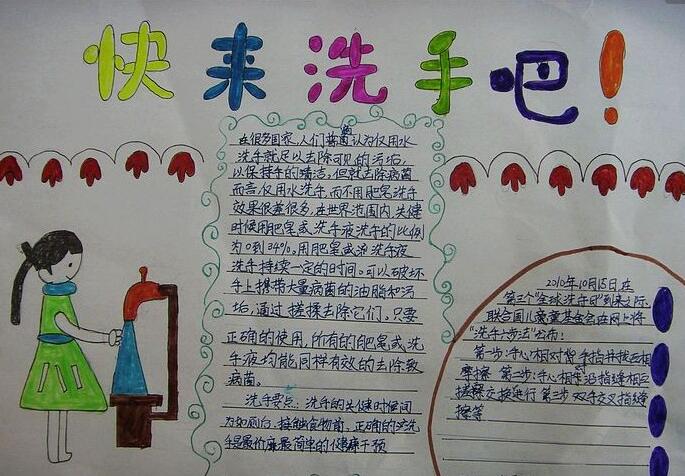 快来洗手吧!
在很多国家,人们普遍认为仅用水
洗手就足以去除可见的污垢,
以保持手的清洁,但就去除病菌
而言,仅用水洗手,而不用肥皂洗手
效果很差很多,在世界范围内,关键
时候用肥皂或洗手液洗手的比例
为0到34%。用肥皂或洗手液
洗手持续一定的时间。可以破坏
手上携带大量病菌的油脂和污
垢,通过搓揉去除它们。只要
正确的使用,所有的肥皂或洗
手液均能同样有效的去除致
病菌。
洗手要点:洗手的关健时候间
为如厕后、接触食物前,正确的洗
手是最价廉最简单的健康干预
2010年10月15日在
第三个"全球洗手日"到来之际,
联合国儿童基金会在网上将
"洗手六步法"公布:
第一步:手心相对 手指并拢相
摩擦 第二步:手心相 沿指缝相互
搓擦 交换进行 第三步 双手交叉指缝
擦等